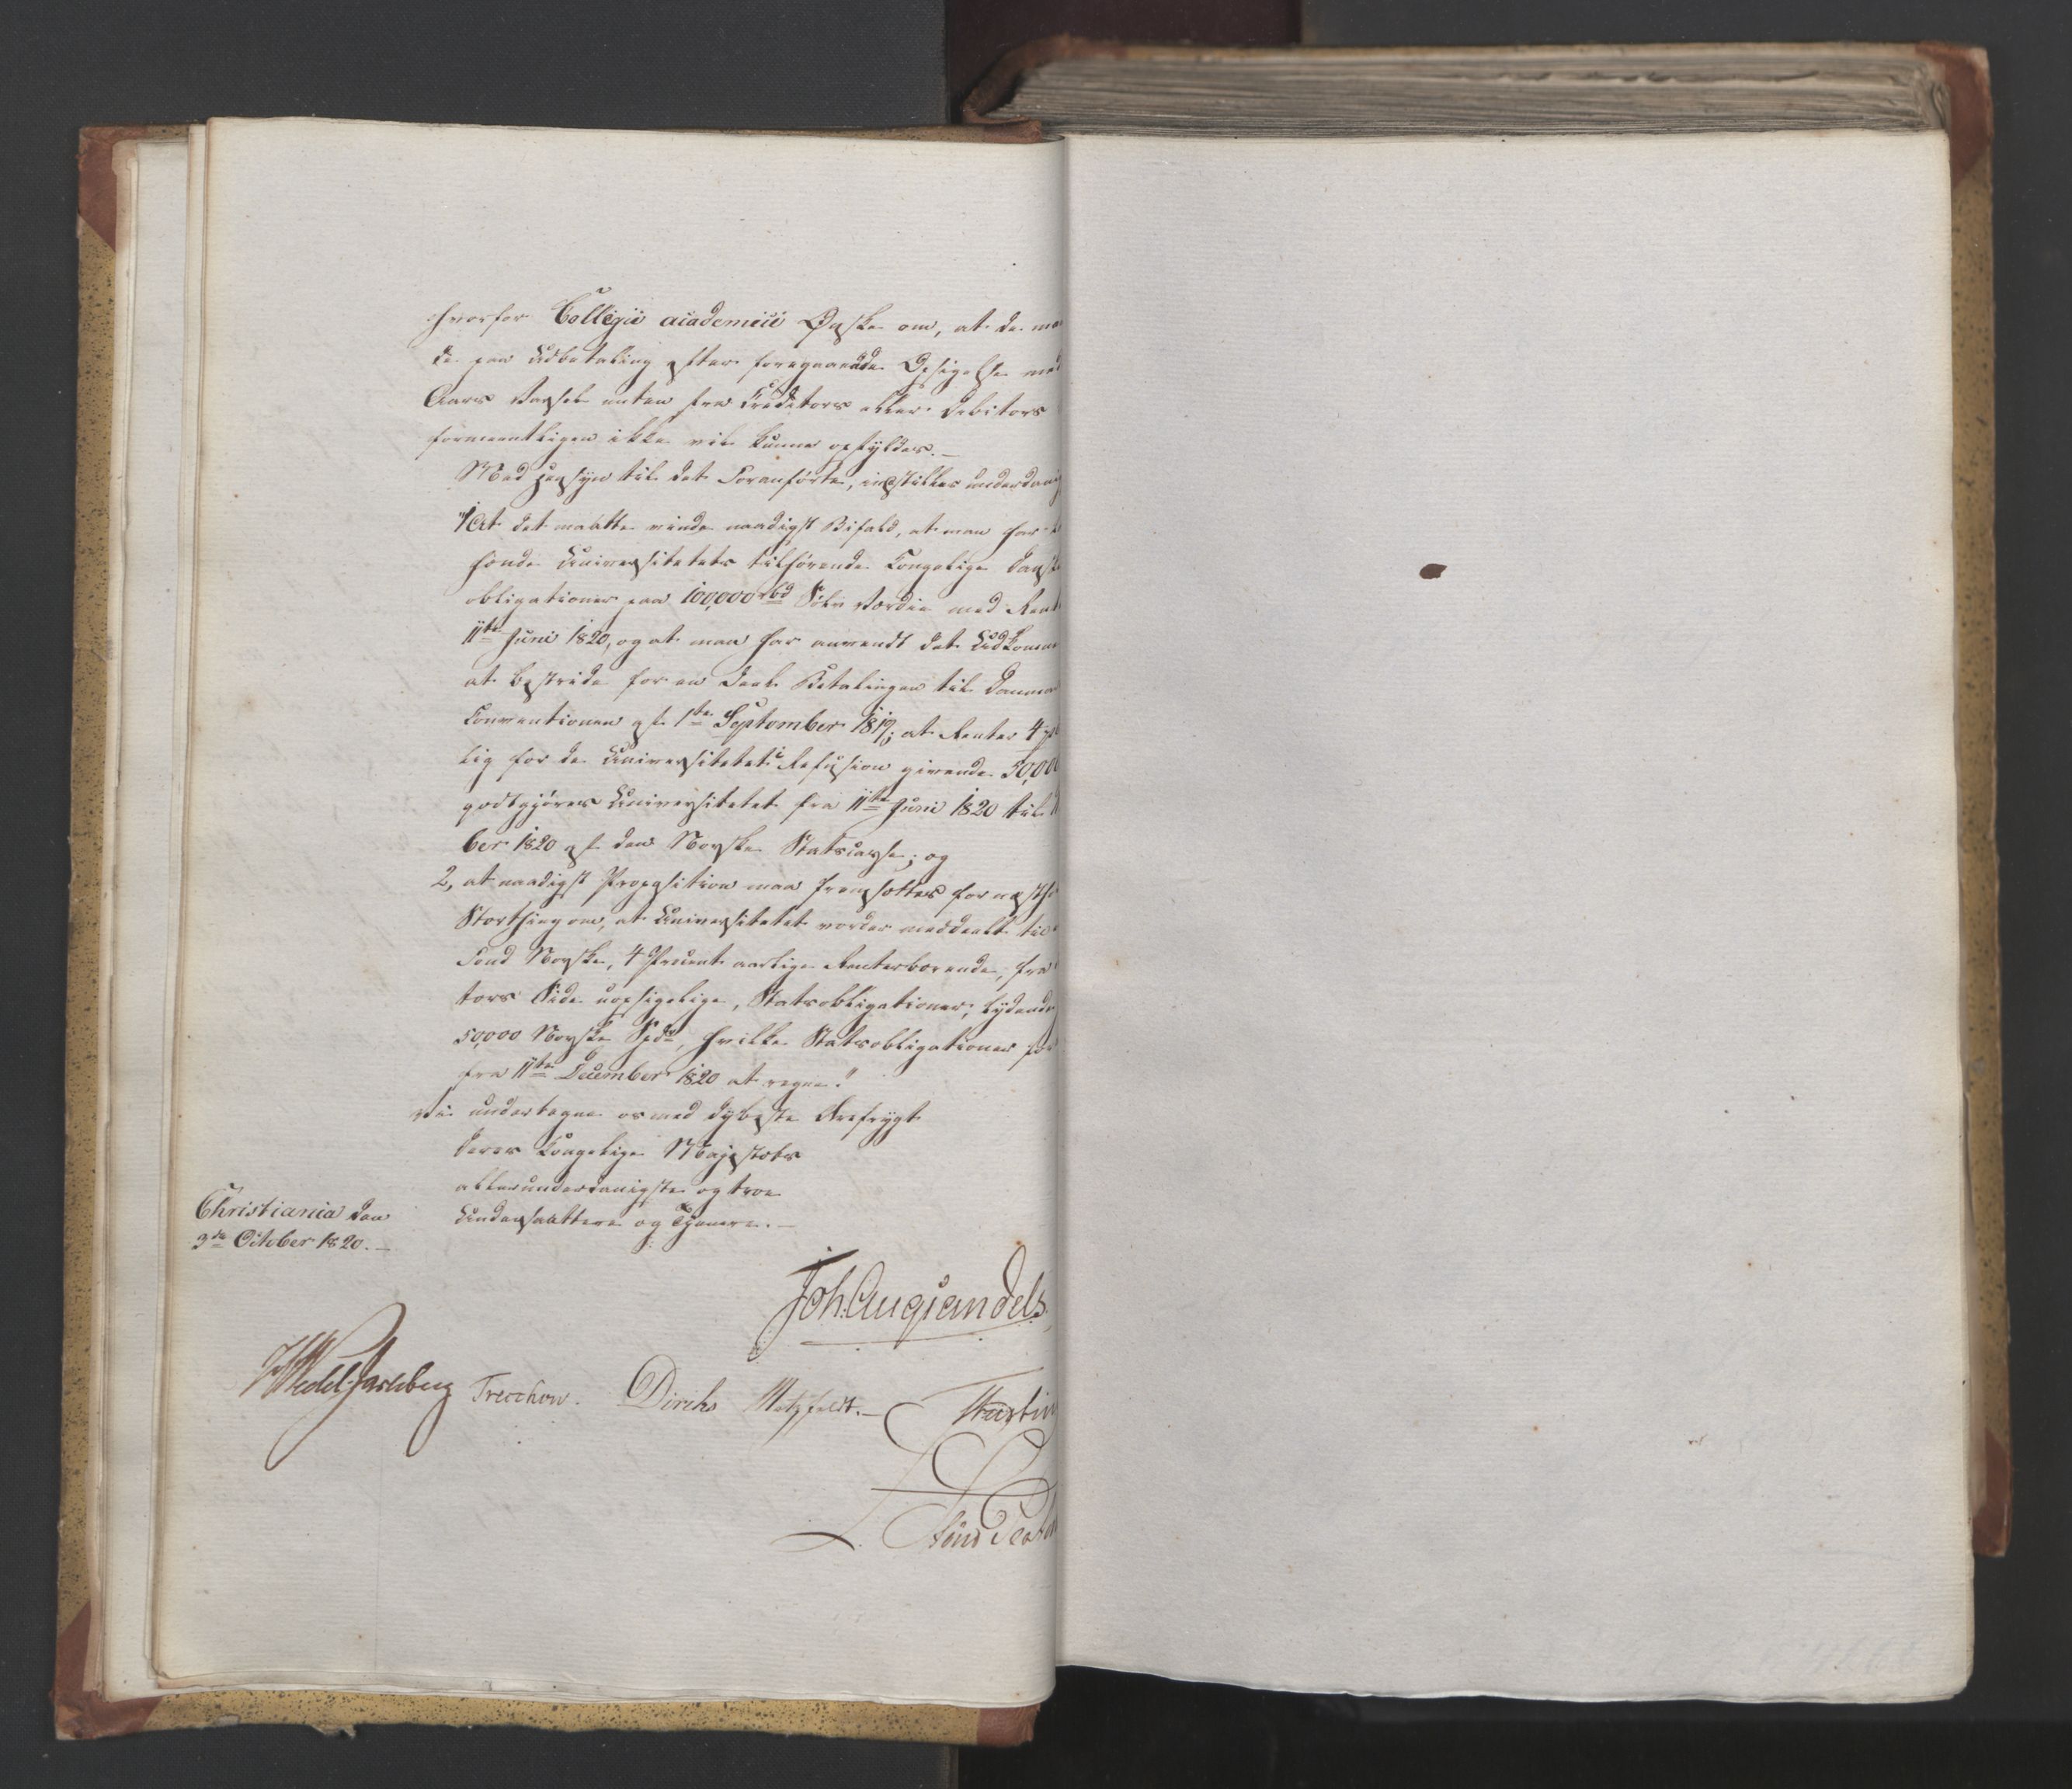 hvorfor Collegii academici Ønske om, at de maa
de paa Udbetaling efter foregaaende Opsigelse med
Aars Varsel enten fra Creditors eller Debitors
formeentligen ikke vil kunne opfyldes. —
Med Hensyn til det Foranførte, indstilles underdanig
"1, At det maatte vinde naadigst Bifald, at man har
hænde Universitetets tilhørende Kongelige danske
obligationer paa 100,000 rbd Sølv Værdie med Rente
11te Juni 1820, og at man har anvendt det Udkomne
at bestride for en Deel Betalingen til Danmark
Conventionen af 1ste September 1819; at Renter 4 pro
lig for de Universitetet i Refusion givende 50,000
godtgjøres Universitetet fra 11te Juni 1820 til
ber 1820 af den Norske Statscasse; og
2, at naadigst Proposition maa fremsættes for næste
Storthing om, at Universitetet vorder meddeelt til
Fond Norske, 4 Procent aarlige Renter bærende, fra
tors Side uopsigelige, Statsobligationer, lydende
50,000 Norske Spdr, hvilke Statsobligationer
fra 11te December 1820 at regne."
vi undertegne os med dybeste Ærefrygt
Deres Kongelige Majestæts
allerunderdanigste og troe
Undersaattere og Tjenere. —
Christiania den
3de October 1820. —
Joh: Aug: Sandels.
H Wedel Jarlsberg Treschow. Diriks Motzfeldt. —